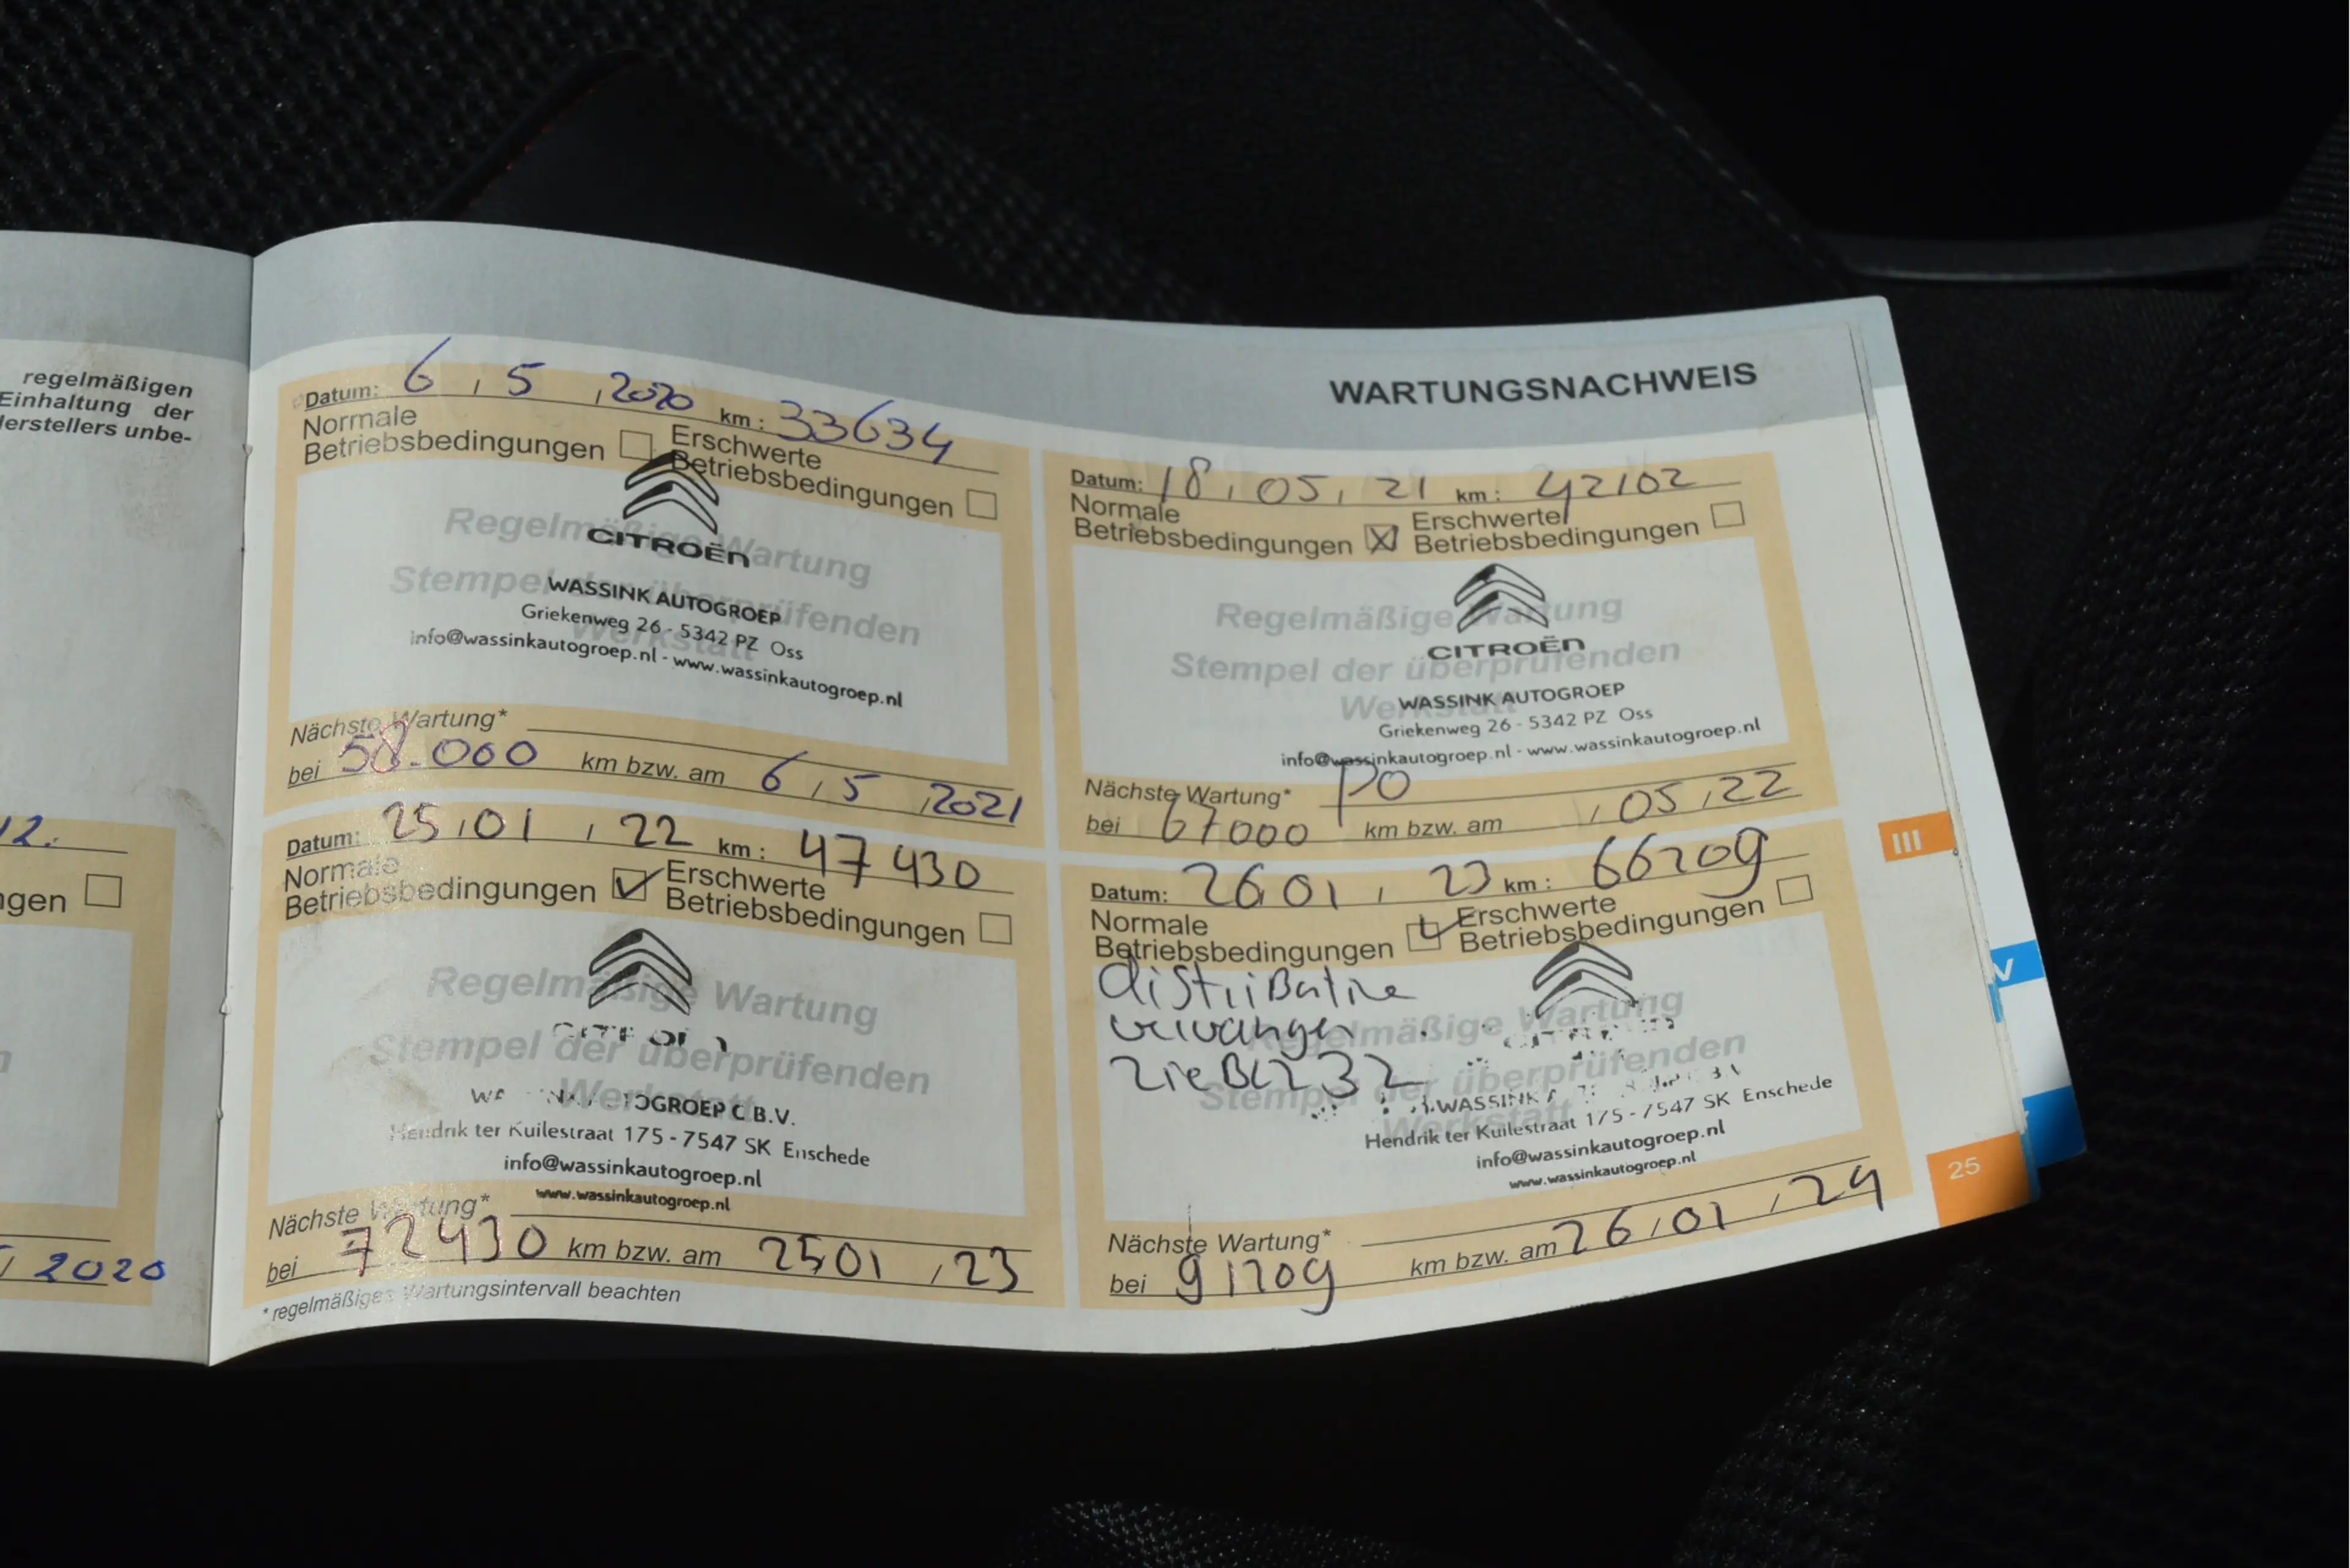 regelmäßigen
Einhaltung der
erstellers unbe-
12.
ngen
2020
WARTUNGSNACHWEIS
Datum: 6 , 5 , 2020 km : 33634
Normale
Betriebsbedingungen
Erschwerte
Betriebsbedingungen
Regelmäßige Wartung
Stempel der überprüfenden
Werkstatt
CITROËN
WASSINK AUTOGROEP
Griekenweg 26 - 5342 PZ Oss
info@wassinkautogroep.nl - www.wassinkautogroep.nl
Nächste Wartung*
bei 58.000 km bzw. am 6 , 5 , 2021
Datum: 18 , 05 , 21 km : 42102
Normale
Betriebsbedingungen X
Erschwerte
Betriebsbedingungen
Regelmäßige Wartung
Stempel der überprüfenden
Werkstatt
CITROËN
WASSINK AUTOGROEP
Griekenweg 26 - 5342 PZ Oss
info@wassinkautogroep.nl - www.wassinkautogroep.nl
Nächste Wartung* PO
bei 67000 km bzw. am , 05 , 22
Datum: 25 , 01 , 22 km : 47430
Normale
Betriebsbedingungen
Erschwerte
Betriebsbedingungen
Regelmäßige Wartung
Stempel der überprüfenden
Werkstatt
OGROEP C B.V.
Hendrik ter Kuilestraat 175 - 7547 SK Enschede
info@wassinkautogroep.nl
www.wassinkautogroep.nl
Nächste Wartung*
bei 72430 km bzw. am 25 , 01 , 23
* regelmäßiges Wartungsintervall beachten
Datum: 26 01 , 23 km : 66209
Normale
Betriebsbedingungen
Erschwerte
Betriebsbedingungen
distributie
vervangen
Regelmäßige Wartung
Stempel der überprüfenden
Werkstatt
WASSINK
Hendrik ter Kuilestraat 175 - 7547 SK Enschede
info@wassinkautogroep.nl
www.wassinkautogroep.nl
Nächste Wartung*
bei 91209 km bzw. am 26 , 01 , 24
III
V
25